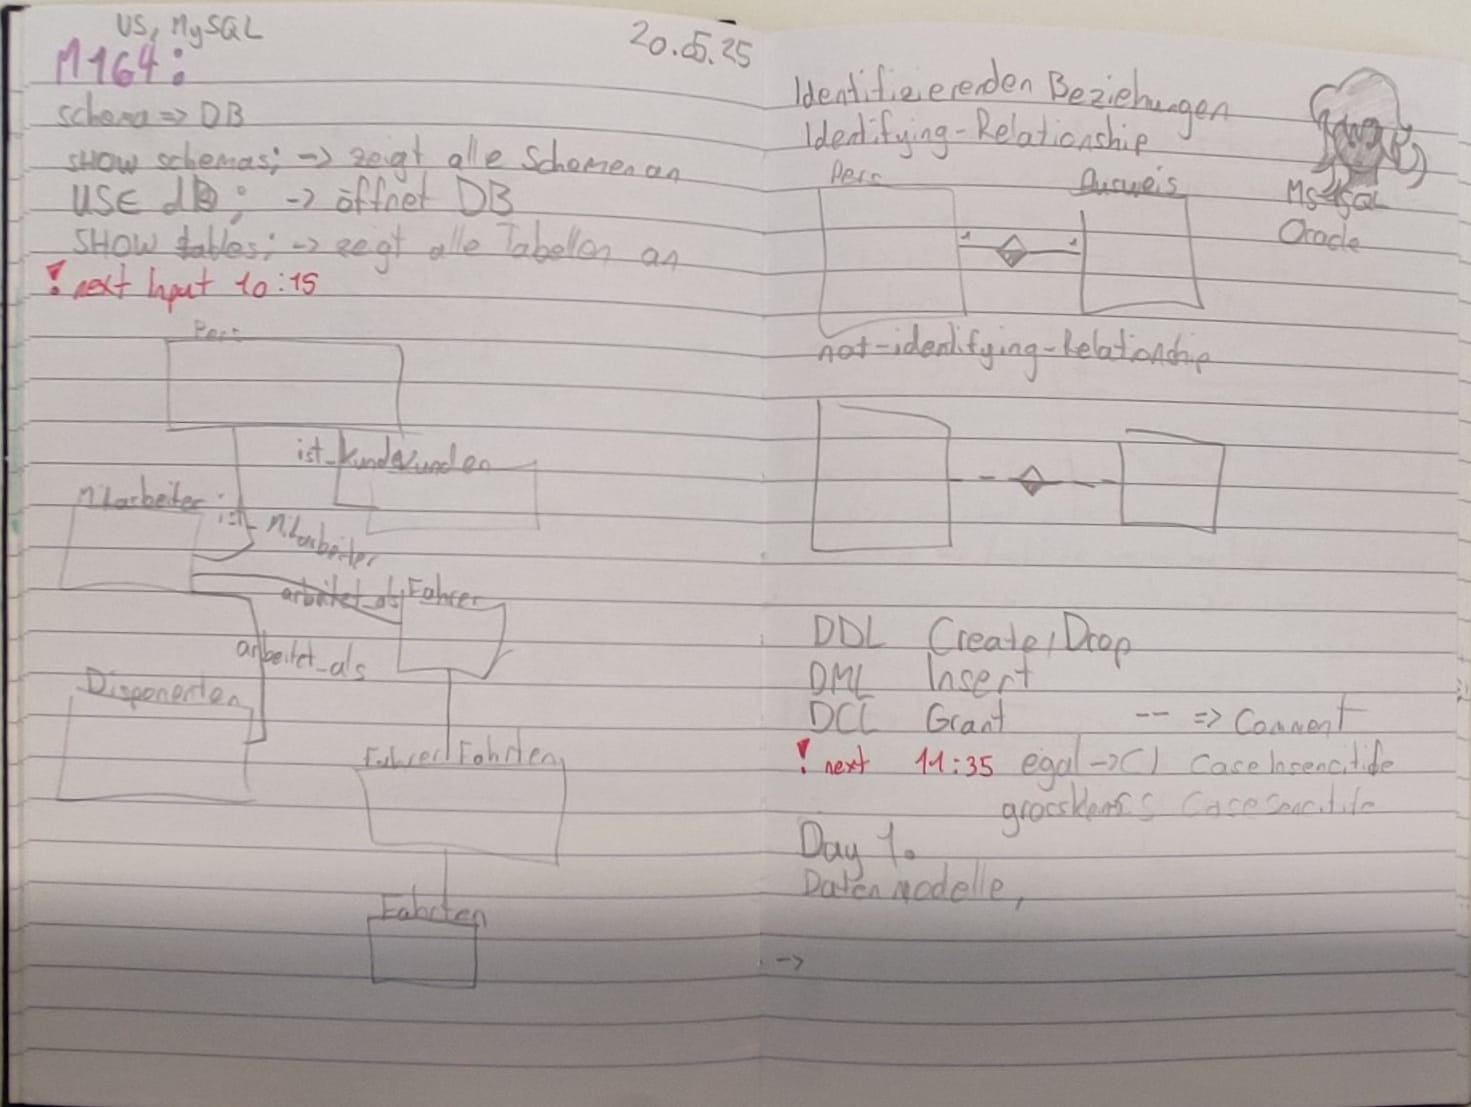 US, MySQL
20.05.25
M164:
schema => DB
SHOW schemas; -> zeigt alle Schemen an
USE db; -> öffnet DB
SHOW tables; -> zeigt alle Tabellen an
! next Input 10:15
Pers
ist_kunde
Kunden
Mitarbeiter
ist_Mitarbeiter
arbeitet_als
Fahrer
arbeitet_als
Disponenten
Fahrer Fahrten
Fahrten
Identifizierenden Beziehungen
Identifying-Relationship
Pers
Ausweis
1
1
MsSQL
Oracle
not-identifying-Relationship
DDL Create, Drop
DML Insert
DCL Grant -- => Comment
! next 11:35 egal -> CI Case Insencitife
CS Casesencitife
Day 1.
Datenmodelle,
->